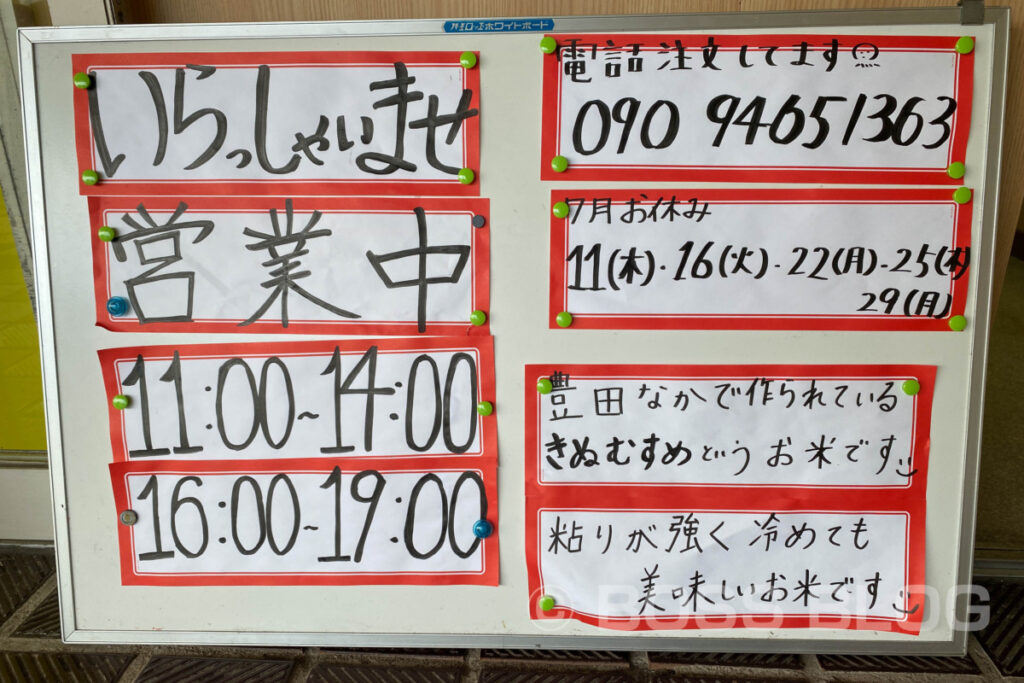 ホワイトボード
いらっしゃいませ
営業中
11:00~14:00
16:00~19:00
電話注文してます
090 94651363
7月お休み
11(木)・16(火)・22(月)・25(木)
29(月)
豊田なかで作られている
きぬむすめというお米です
粘りが強く冷めても
美味しいお米です
© BOSS BLOG